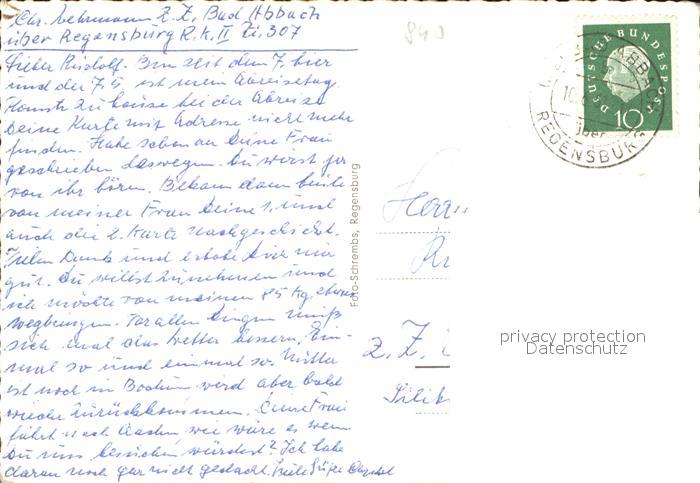 Chr. Lehrmann z. Z. Bad Abbach
über Regensburg R. K. II Zi. 307
Lieber Rudolf. Bin seit dem 7. hier
und der 7.5. ist mein Abreisetag.
Konnte zu hause bei der Abreise
Deine Karte mit Adresse nicht mehr
finden. Habe schon an Deine Frau
geschrieben deswegen. Du wirst ja
von ihr hören. Bekam dann heute
von meiner Frau Deine 1. und
auch die 2. Karte nachgeschickt.
Vielen Dank und erhole Dir
gut. Du willst zunehmen und
ich möchte von meinen 85 Kg. etwas
wegbringen. Vor allen Dingen muß
sich mal das Wetter bessern. Ein-
mal so und einmal so. Mutter
ist noch in Bochum wird aber bald
wieder zurückkommen. Deine Frau
fährt nach Aachen, wie wäre es wenn
Du uns besuchen würdest? Ich habe
daran noch gar nicht gedacht. Viele Grüße
840
Foto-Schrembs, Regensburg
DEUTSCHE BUNDESPOST
10
ABBACH
über
REGENSBURG
Herrn
z. Z.
privacy protection
Datenschutz